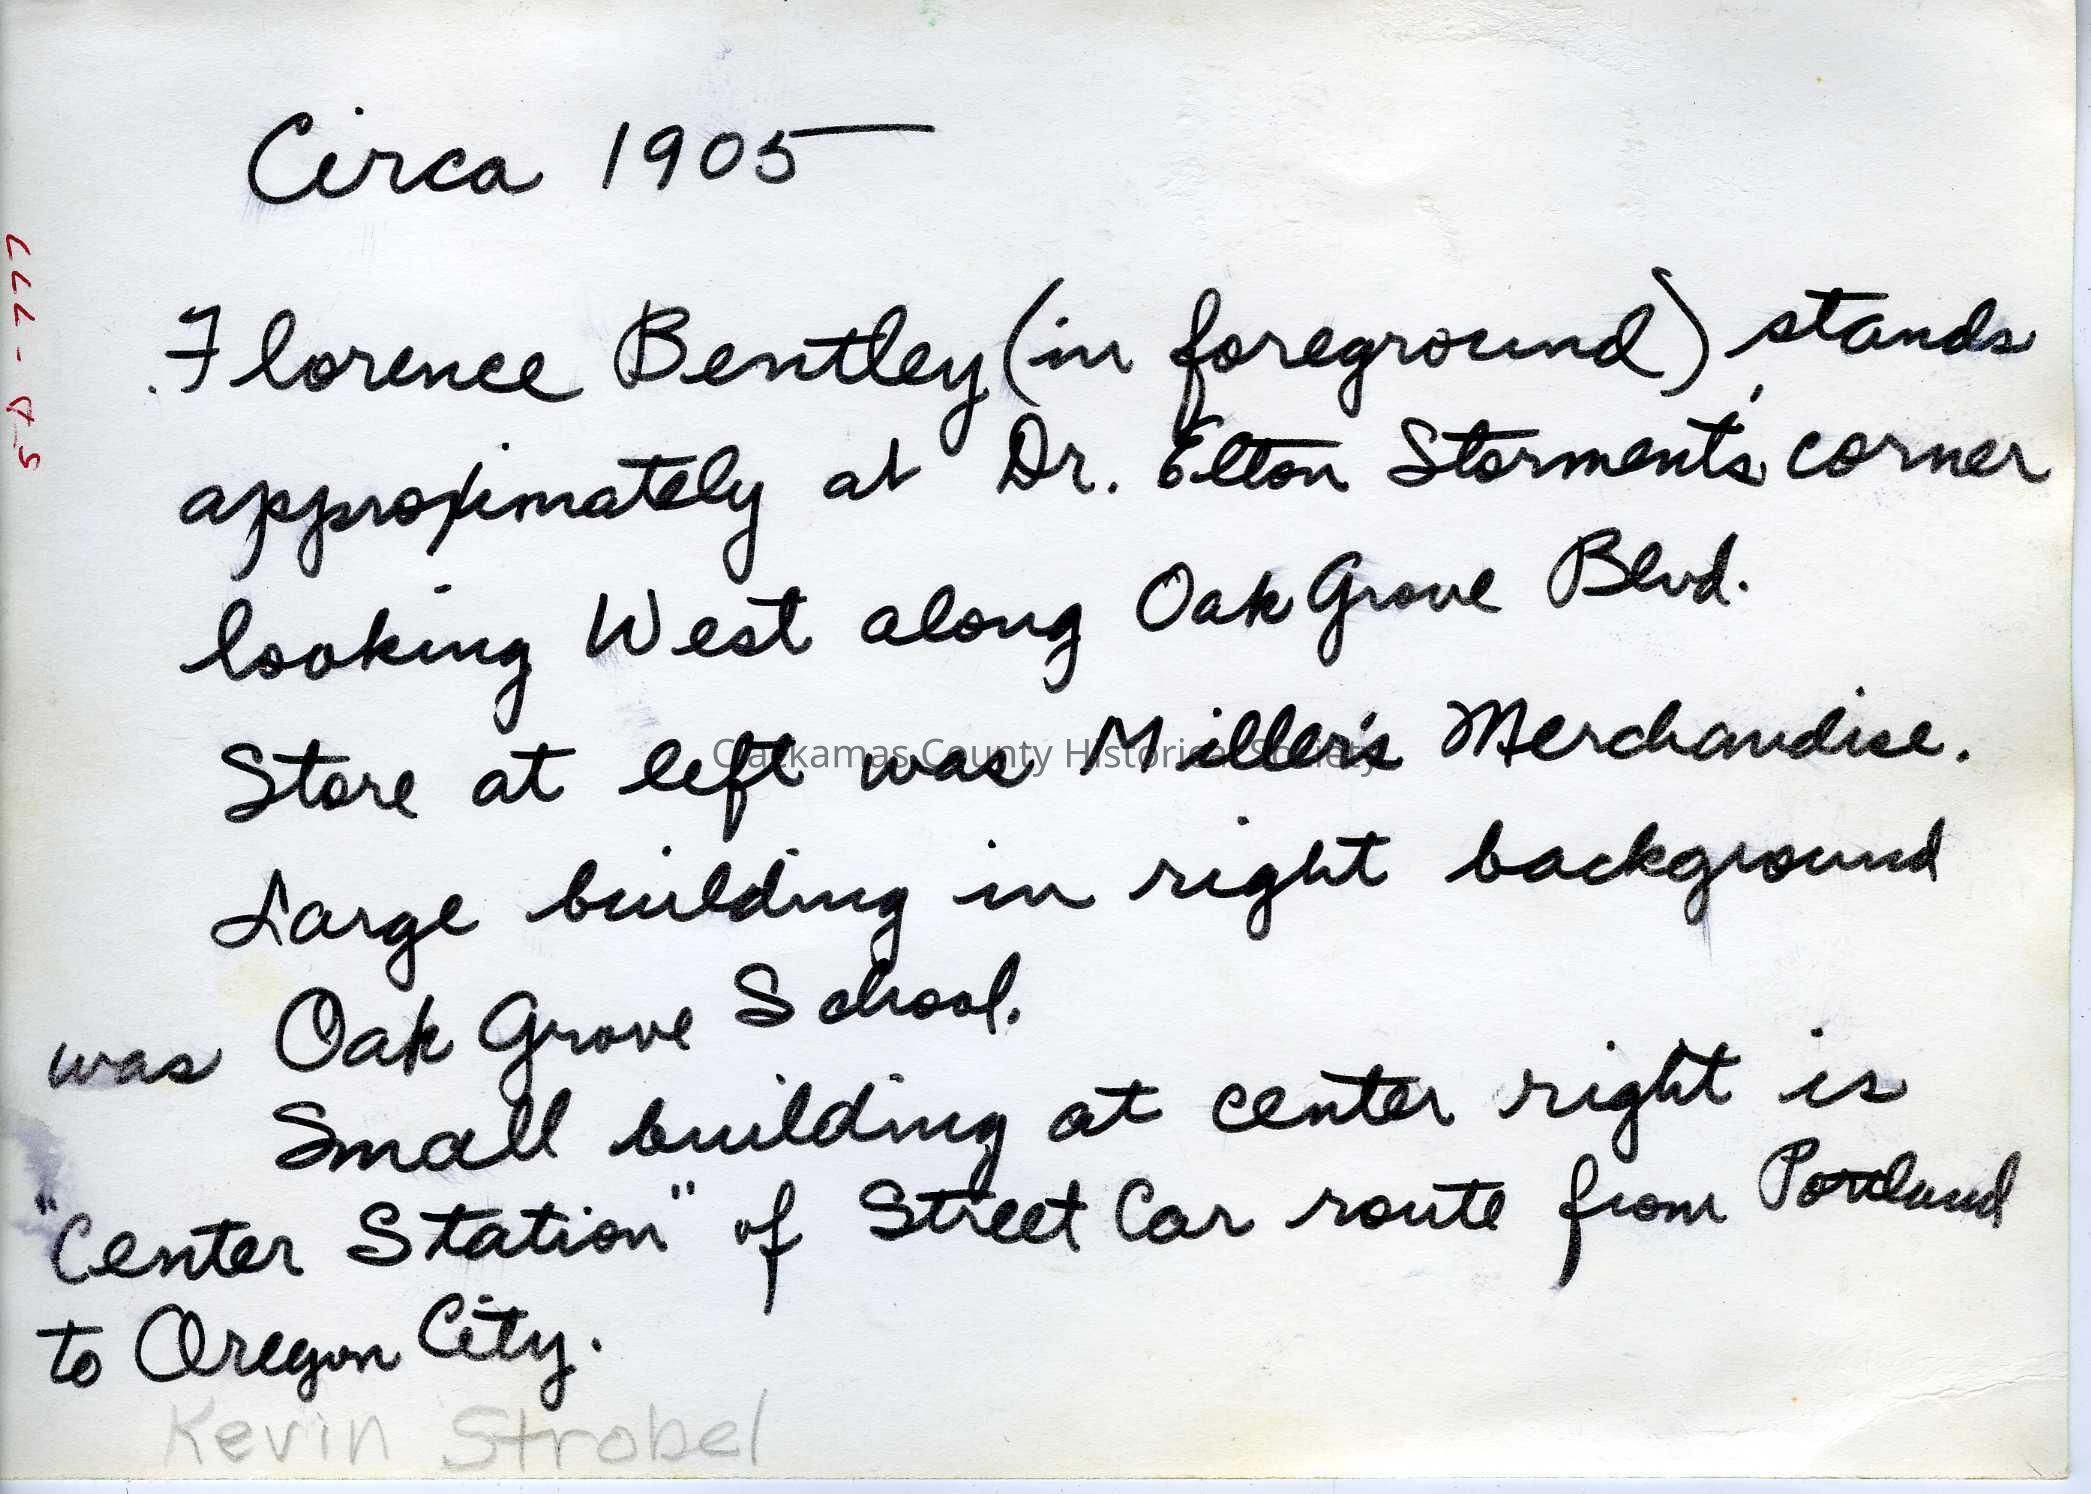 Circa 1905
Florence Bentley (in foreground) stands
approximately at Dr. Elton Storment's corner
looking West along Oak Grove Blvd.
Store at left was Miller's Merchandise.
Large building in right background
was Oak Grove School.
Small building at center right is
"Center Station" of Street Car route from Portland
to Oregon City.
Kevin Strobel
Clackamas County Historical Society